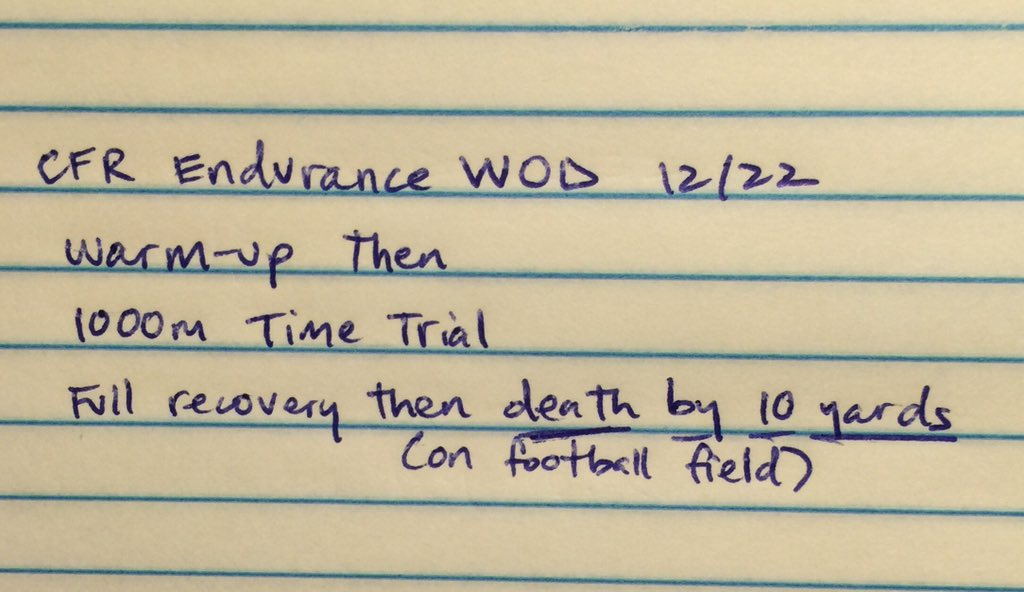 CFR Endurance WOD 12/22
Warm-up Then
1000m Time Trial
Full recovery then death by 10 yards
(on football field)